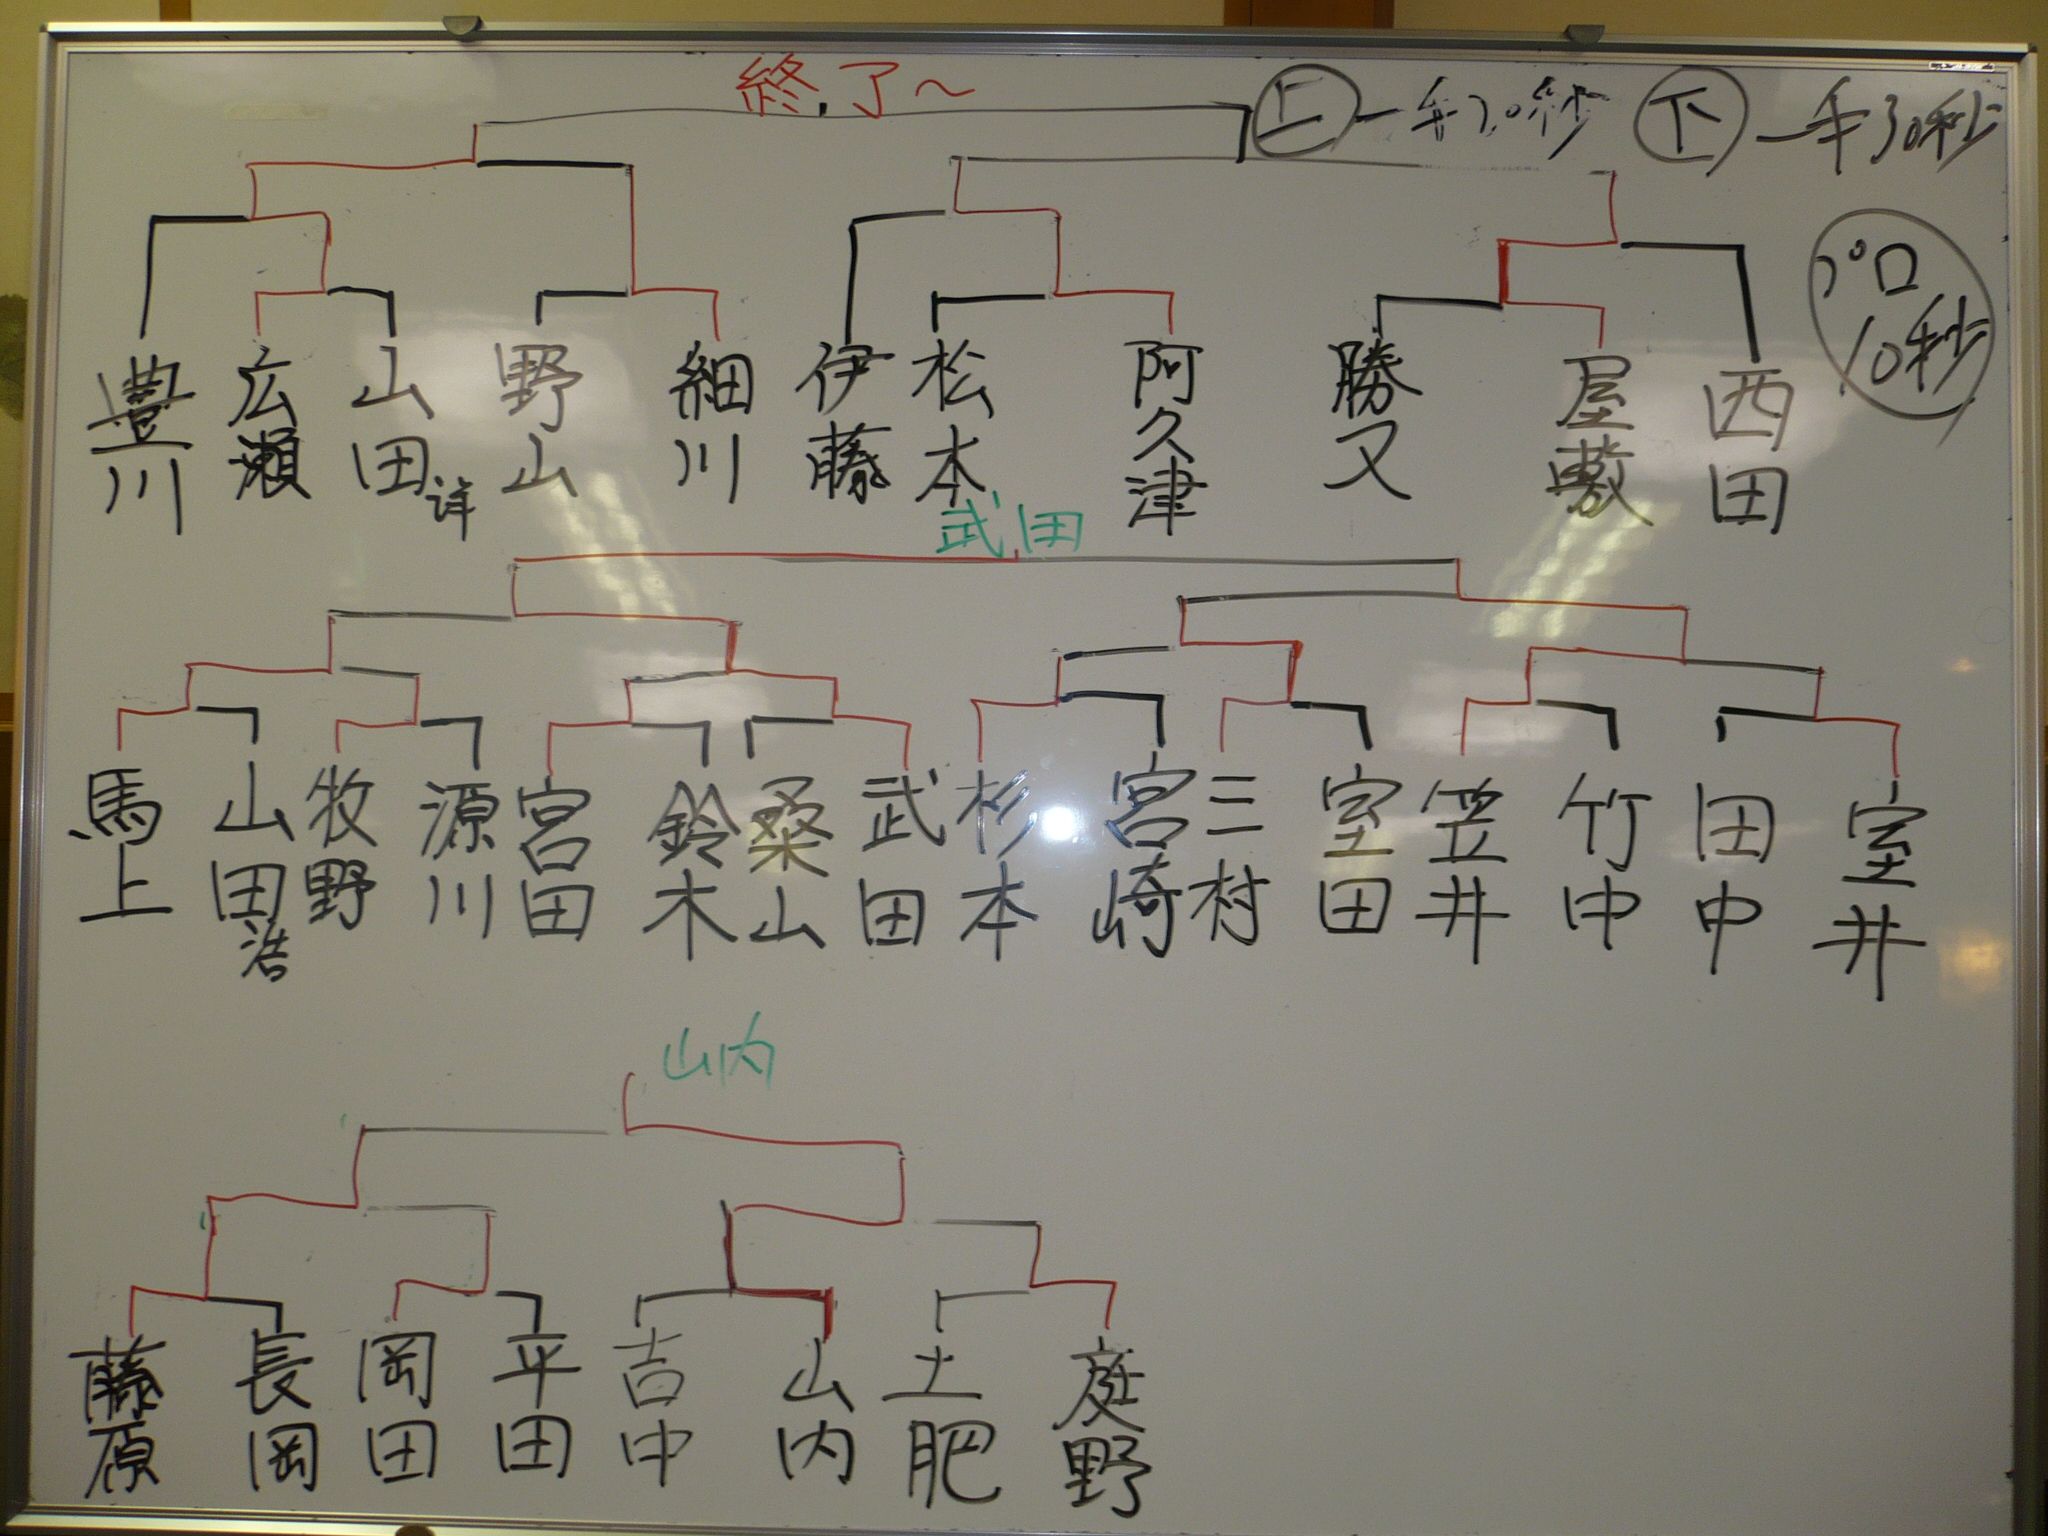 終了〜
上 一手30秒 下 一手30秒
プロ
10秒
豊川 広瀬 山田詳 野山 細川 伊藤 松本 阿久津 勝又 屋敷 西田
武田
馬上 山田浩 牧野 源川 宮田 鈴木 桑山 武田 杉本 宮崎 三村 室田 笠井 竹中 田中 室井
山内
藤原 長岡 岡田 平田 吉中 山内 土肥 庭野